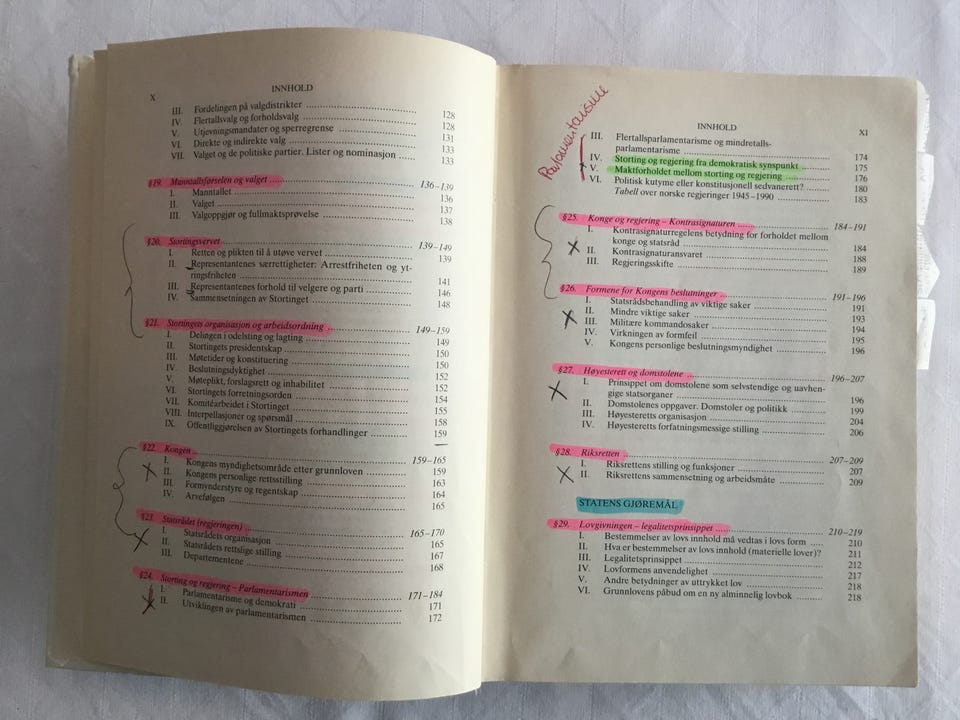 X
INNHOLD
III. Fordelingen på valgdistrikter 128
IV. Flertallsvalg og forholdsvalg 128
V. Utjevningsmandater og sperregrense 131
VI. Direkte og indirekte valg 133
VII. Valget og de politiske partier. Lister og nominasjon 133
§19. Manntallsførselen og valget 136–139
I. Manntallet 136
II. Valget 137
III. Valgoppgjør og fullmaktsprøvelse 138
§20. Stortingsvervet 139–149
I. Retten og plikten til å utøve vervet 139
II. Representantenes særrettigheter: Arrestfriheten og yt-
ringsfriheten 141
III. Representantenes forhold til velgere og parti 146
IV. Sammensetningen av Stortinget 148
§21. Stortingets organisasjon og arbeidsordning 149–159
I. Delingen i odelsting og lagting 149
II. Stortingets presidentskap 150
III. Møtetider og konstituering 150
IV. Beslutningsdyktighet 152
V. Møteplikt, forslagsrett og inhabilitet 152
VI. Stortingets forretningsorden 154
VII. Komitéarbeidet i Stortinget 155
VIII. Interpellasjoner og spørsmål 158
IX. Offentliggjørelsen av Stortingets forhandlinger 159
§22. Kongen 159–165
I. Kongens myndighetsområde etter grunnloven 159
II. Kongens personlige rettsstilling 163
III. Formynderstyre og regentskap 164
IV. Arvefølgen 165
§23. Statsrådet (regjeringen) 165–170
I. Statsrådets organisasjon 165
II. Statsrådets rettslige stilling 167
III. Departementene 168
§24. Storting og regjering – Parlamentarismen 171–184
I. Parlamentarisme og demokrati 171
II. Utviklingen av parlamentarismen 172
Parlamentarisme
INNHOLD
XI
III. Flertallsparlamentarisme og mindretalls-
parlamentarisme 174
IV. Storting og regjering fra demokratisk synspunkt 175
V. Maktforholdet mellom storting og regjering 176
VI. Politisk kutyme eller konstitusjonell sedvanerett? 180
Tabell over norske regjeringer 1945–1990 183
§25. Konge og regjering – Kontrasignaturen 184–191
I. Kontrasignaturregelens betydning for forholdet mellom
konge og statsråd 184
II. Kontrasignaturansvaret 188
III. Regjeringsskifte 189
§26. Formene for Kongens beslutninger 191–196
I. Statsrådsbehandling av viktige saker 191
II. Mindre viktige saker 193
III. Militære kommandosaker 194
IV. Virkningen av formfeil 195
V. Kongens personlige beslutningsmyndighet 196
§27. Høyesterett og domstolene 196–207
I. Prinsippet om domstolene som selvstendige og uavhen-
gige statsorganer 196
II. Domstolenes oppgaver. Domstoler og politikk 199
III. Høyesteretts organisasjon 204
IV. Høyesteretts forfatningsmessige stilling 206
§28. Riksretten 207–209
I. Riksrettens stilling og funksjoner 207
II. Riksrettens sammensetning og arbeidsmåte 209
STATENS GJØREMÅL
§29. Lovgivningen – legalitetsprinsippet 210–219
I. Bestemmelser av lovs innhold må vedtas i lovs form 210
II. Hva er bestemmelser av lovs innhold (materielle lover)? 211
III. Legalitetsprinsippet 212
IV. Lovformens anvendelighet 217
V. Andre betydninger av uttrykket lov 218
VI. Grunnlovens påbud om en ny alminnelig lovbok 218